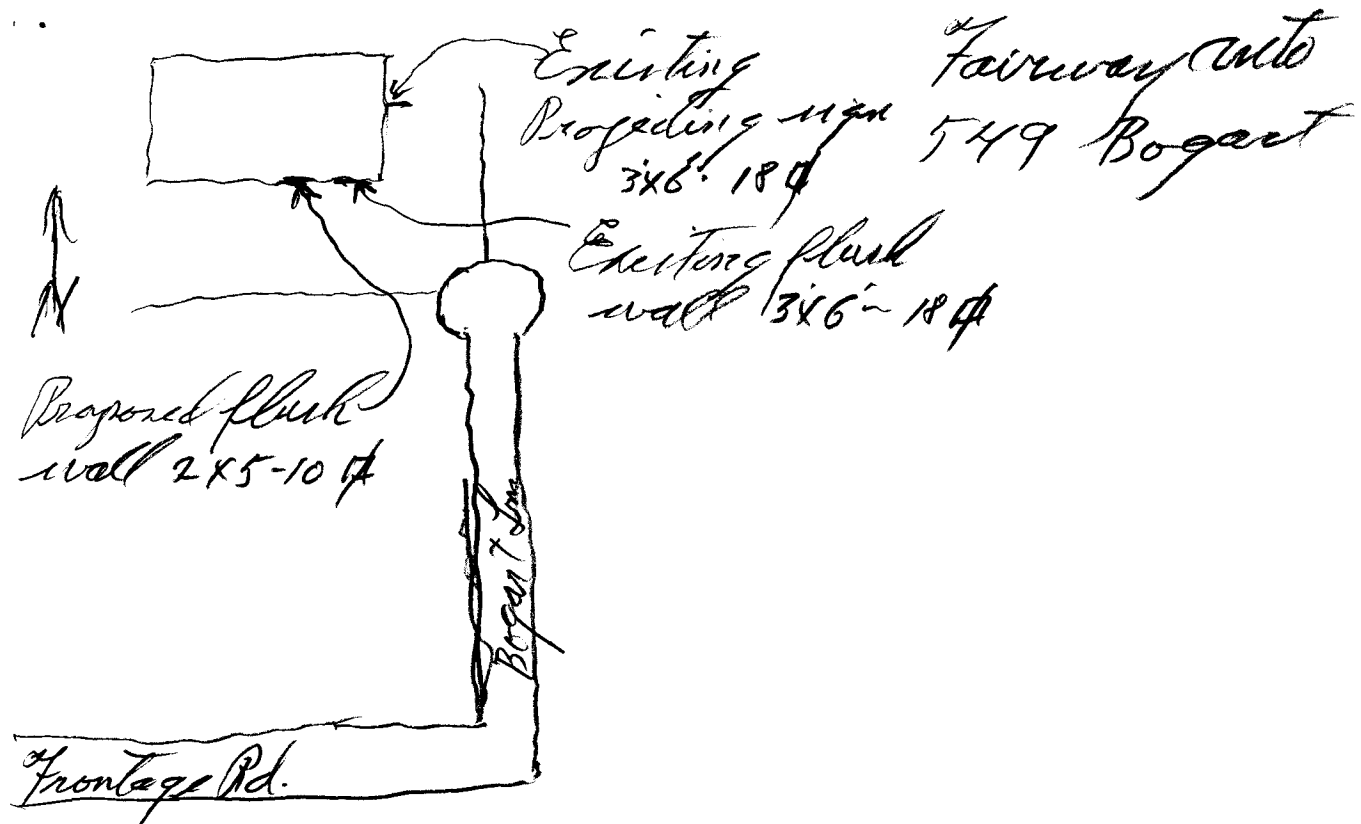 Existing
Projecting sign
3'x6' - 18 ⌷
Fairway Auto
549 Bogart
Existing flush
wall 3'x6' - 18 ⌷
N
Proposed flush
wall 2x5-10 ⌷
Bogart Ln
Frontage Rd.